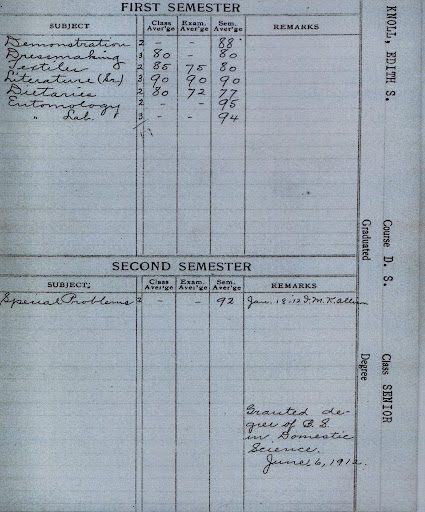 FIRST SEMESTER
SUBJECT Class Aver'ge Exam. Aver'ge Sem. Aver'ge REMARKS
Demonstration 2 - - 88
Dressmaking 3 80 - 80
Textiles 2 85 75 80
Literature 3 90 90 90
Dietaries 2 80 72 77
Entomology 2 - - 95
" Lab. 3 - - 94
SECOND SEMESTER
SUBJECT; Class Aver'ge Exam. Aver'ge Sem. Aver'ge REMARKS
Special Problems 2 - - 92 Jan. 18-13
Granted de-
gree of B.S.
in Domestic
Science.
June 6, 1912.
KNOLL, EDITH S.
Course D. S. Class SENIOR
Graduated Degree